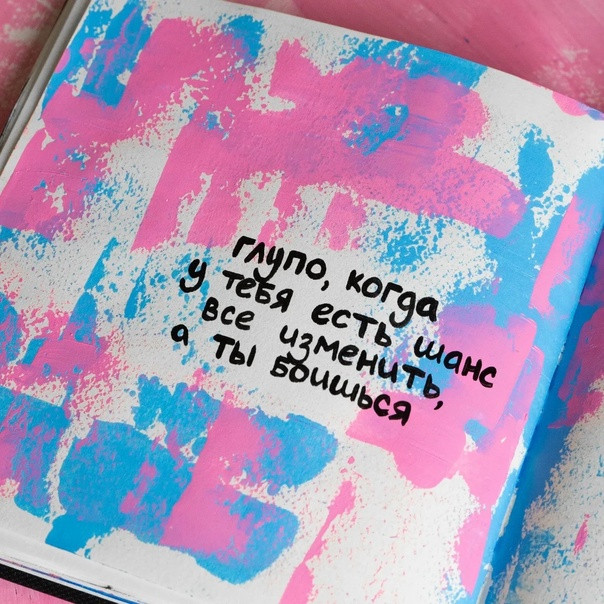 глупо, когда
у тебя есть шанс
все изменить,
а ты боишься